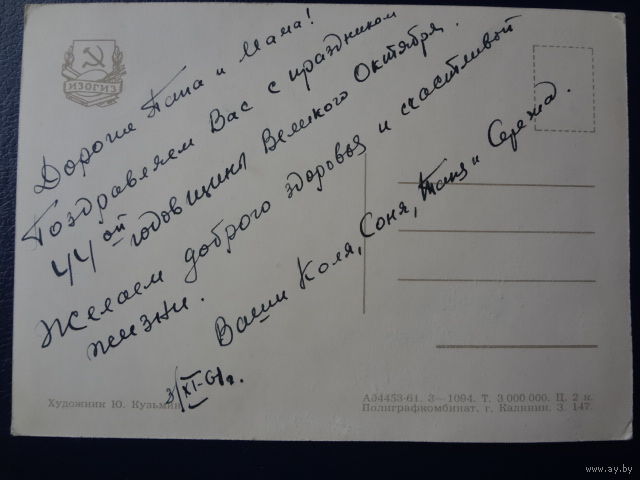 ИЗОГИЗ
Дорогие Папа и Мама!
Поздравляем Вас с праздником
44ой годовщины Великого Октября.
Желаем доброго здоровья и счастливой
жизни.
Ваши Коля, Соня, Таня и Сережа.
3/XI-61г.
Художник Ю. Кузьмин
А04453-61. 3—1094. Т. 3 000 000. Ц. 2 к.
Полиграфкомбинат, г. Калинин. З. 147
www.ay.by